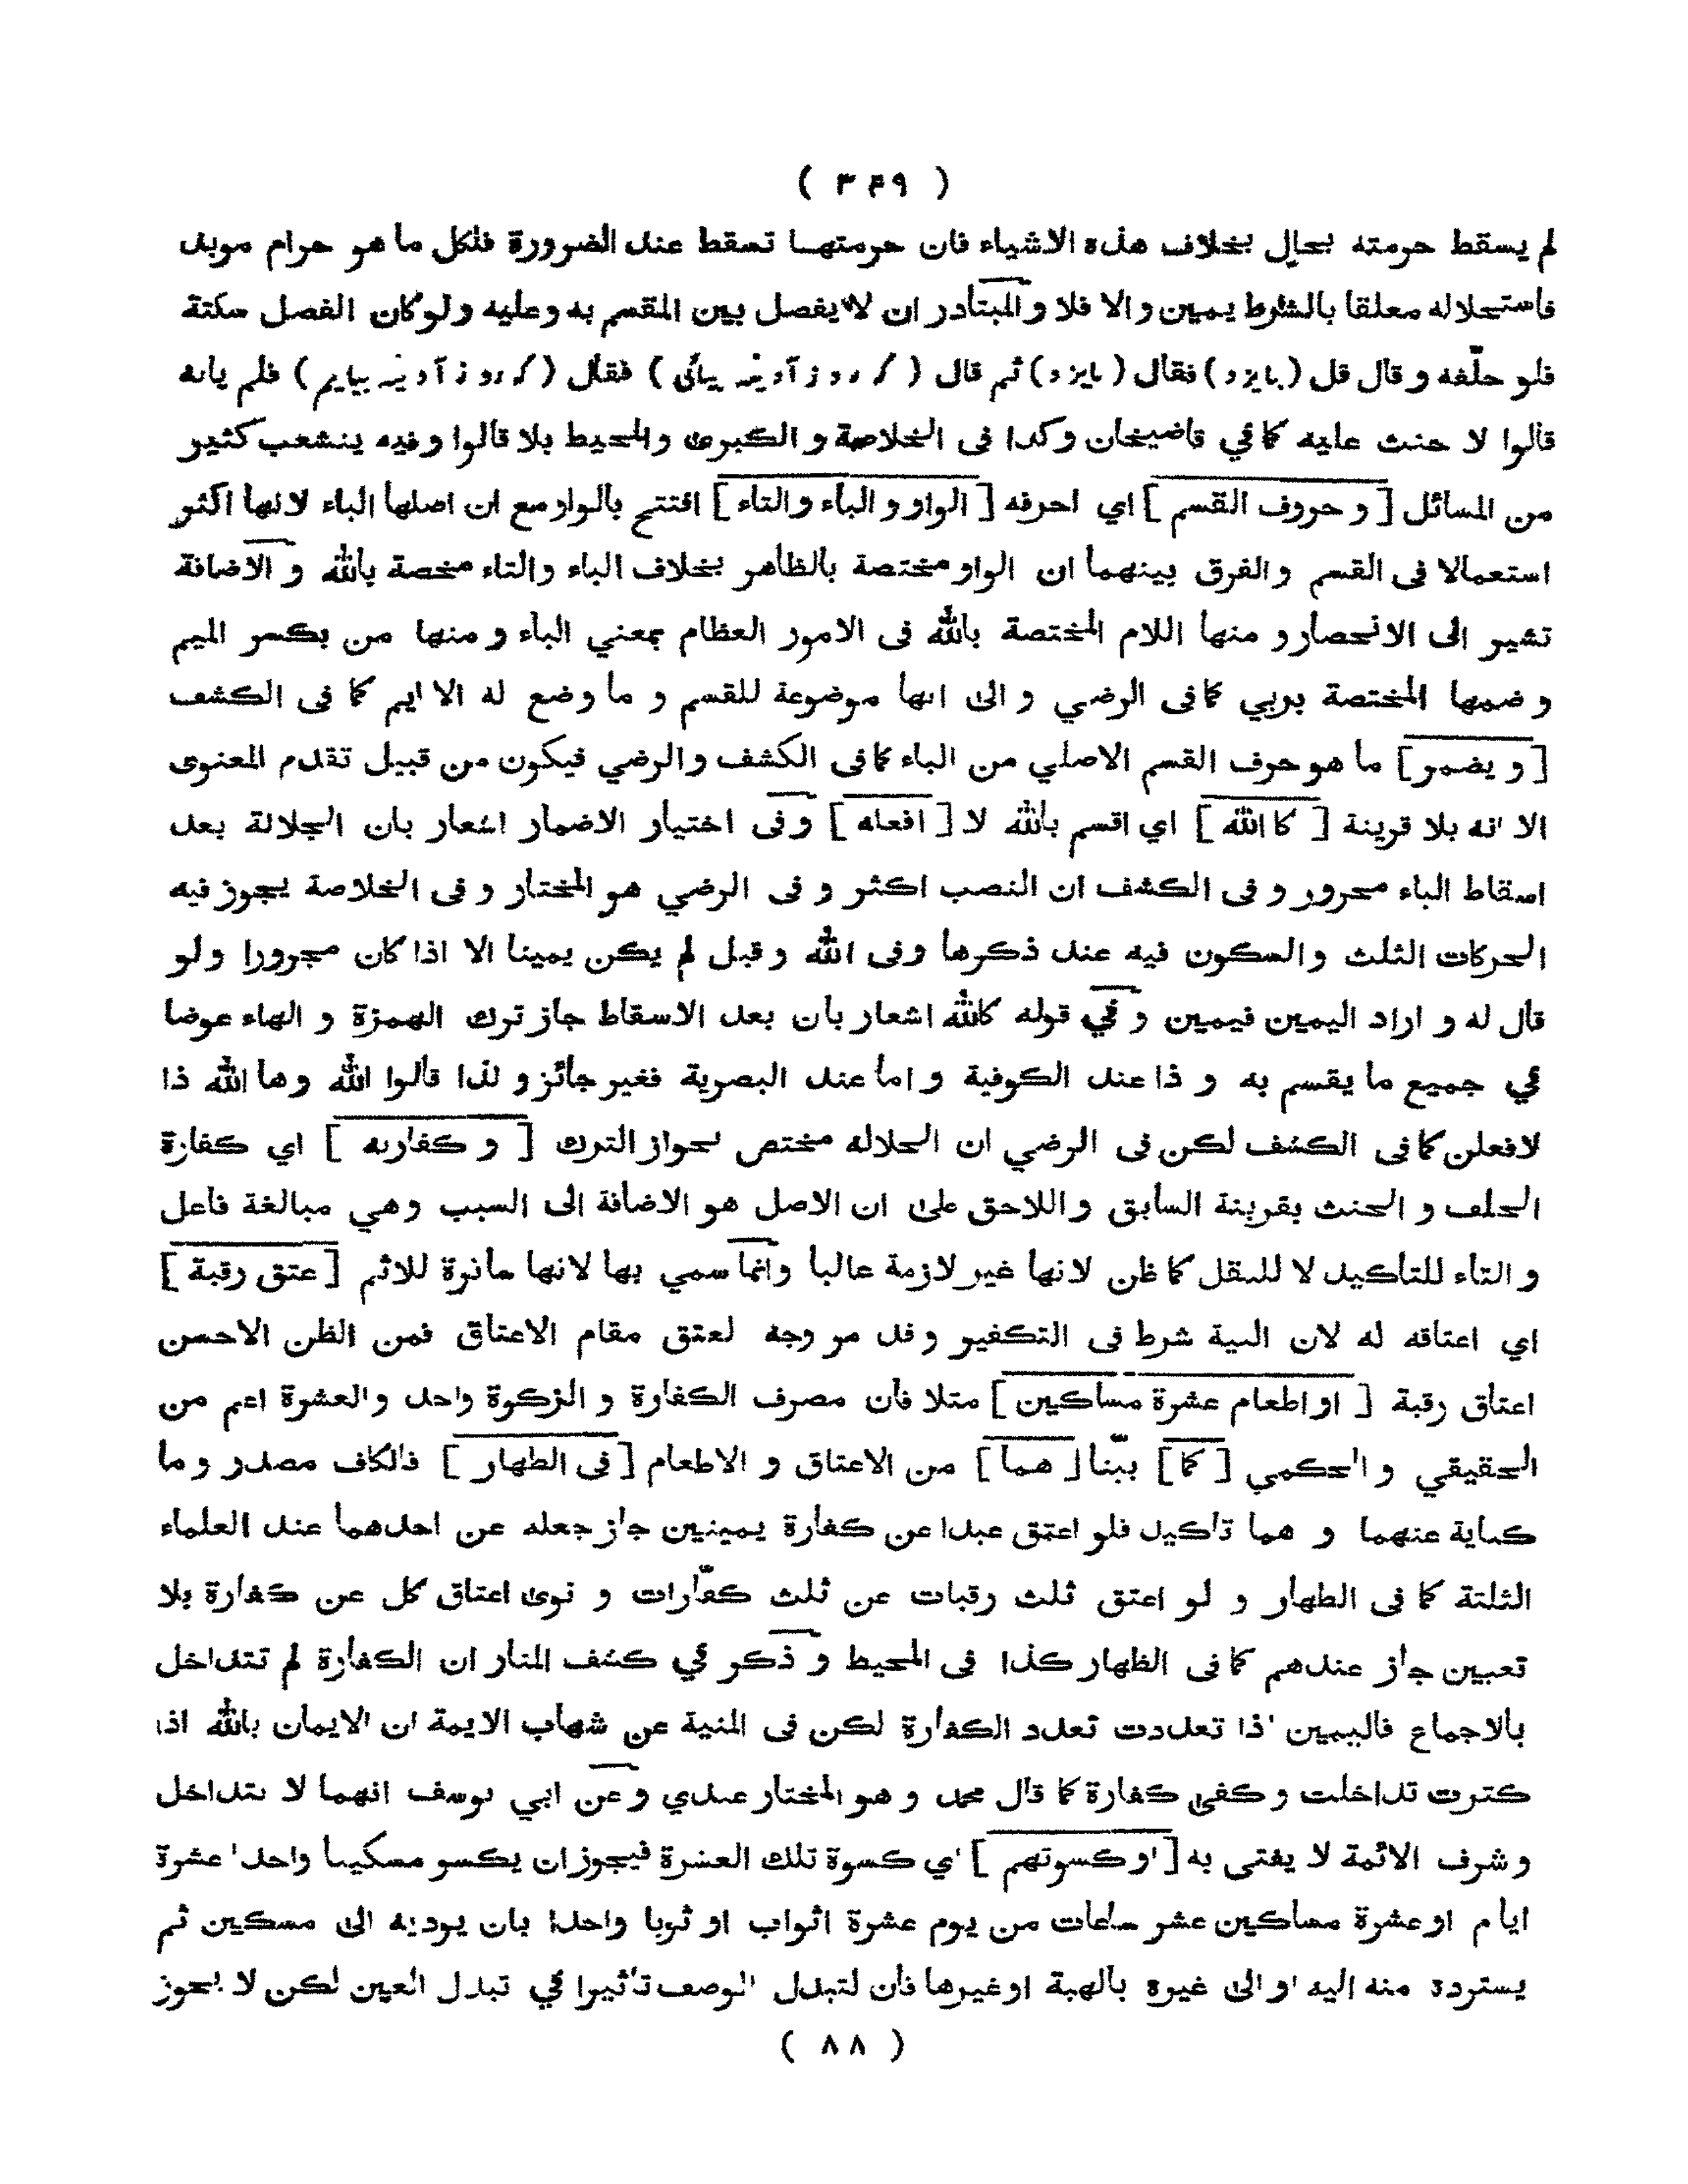 ( ٣٤٩ )
لم يسقط حرمته بحال بخلاف هذه الاشياء فان حرمتهـا تسقط عند الضرورة فلكل ما هو حرام موبد
فاستحلاله معلقا بالشرط يمين والا فلا والمبتادر ان لا يفصل بين المقسم به وعليه ولوكان الفصل سكتة
فلو حلّفه وقال قل (بايزد) فقال (بايزد) ثم قال ( كه روز آدينه بيائى ) فقال ( كه روز آدينه بيايم ) فلم يأته
قالوا لا حنث عليه كما في قاضيخان وكذا فى الخلاصة والكبرى والمحيط بلا قالوا وفيه ينشعب كثير
من المسائل [ و حروف القسم ] اي احرفه [ الواو و الباء والتاء ] افتتح بالواو مع ان اصلها الباء لانها اكثر
استعمالا فى القسم والفرق بينهما ان الواو مختصة بالظاهر بخلاف الباء والتاء مخصة بالله و الاضافة
تشير الى الانحصار و منها اللام المختصة بالله فى الامور العظام بمعني الباء و منها من بكسر الميم
و ضمها المختصة بربي كما فى الرضي و الى انها موضوعة للقسم و ما وضع له الا ايم كما فى الكشف
[ و يضمر] ما هو حرف القسم الاصلي من الباء كما فى الكشف والرضي فيكون من قبيل تقدم المعنوى
الا انه بلا قرينة [ كا الله ] اي اقسم بالله لا [ افعله ] وفى اختيار الاضمار اشعار بان الجلالة بعد
اسقاط الباء مجرور و فى الكشف ان النصب اكثر و فى الرضي هو المختار و فى الخلاصة يجوز فيه
الحركات الثلث والسكون فيه عند ذكرها وفى الله وقبل لم يكن يمينا الا اذا كان مجرورا ولو
قال له و اراد اليمين فيمين و في قوله كالله اشعار بان بعد الاسقاط جاز ترك الهمزة و الهاء عوضا
في جميع ما يقسم به و ذا عند الكوفية و اما عند البصرية فغير جائز و لذا قالوا الله وها الله ذا
لافعلن كما فى الكشف لكن فى الرضي ان الجلاله مختص بجواز الترك [ و كفارته ] اي كفارة
الحلف و الحنث بقرينة السابق واللاحق على ان الاصل هو الاضافة الى السبب وهي مبالغة فاعل
و التاء للتأكيد لا للنقل كما ظن لانها غير لازمة غالبا وانما سمي بها لانها ساترة للاثم [ عتق رقبة ]
اي اعتاقه له لان النية شرط فى التكفير و قد مر وجه لعتق مقام الاعتاق فمن الظن الاحسن
اعتاق رقبة [ او اطعام عشرة مساكين ] مثلا فان مصرف الكفارة و الزكوة واحد والعشرة اعم من
الحقيقي و الحكمي [ كما ] بيّنا [ هما ] من الاعتاق و الاطعام [ فى الظهار ] فالكاف مصدر وما
كناية عنهما و هما تاكيد فلو اعتق عبدا عن كفارة يمينين جاز جعله عن احدهما عند العلماء
الثلثة كما فى الظهار و لو اعتق ثلث رقبات عن ثلث كفّارات و نوى اعتاق كل عن كفارة بلا
تعيين جاز عندهم كما فى الظهار كذا فى المحيط و ذكر في كشف المنار ان الكفارة لم تتداخل
بالاجماع فاليمين اذا تعددت تعدد الكفارة لكن فى المنية عن شهاب الايمة ان الايمان بالله اذا
كثرت تداخلت وكفى كفارة كما قال محمد و هو المختار عندي وعن ابي يوسف انهما لا تتداخل
و شرف الائمة لا يفتى به [ او كسوتهم ] اي كسوة تلك العشرة فيجوز ان يكسو مسكينا واحدا عشرة
ايام او عشرة مساكين عشر ساعات من يوم عشرة اثواب او ثوبا واحدا بان يوديه الى مسكين ثم
يسترده منه اليه او الى غيره بالهبة اوغيرها فان لتبدل الوصف تأثيرا في تبدل العين لكن لا يجوز
( ٨٨ )